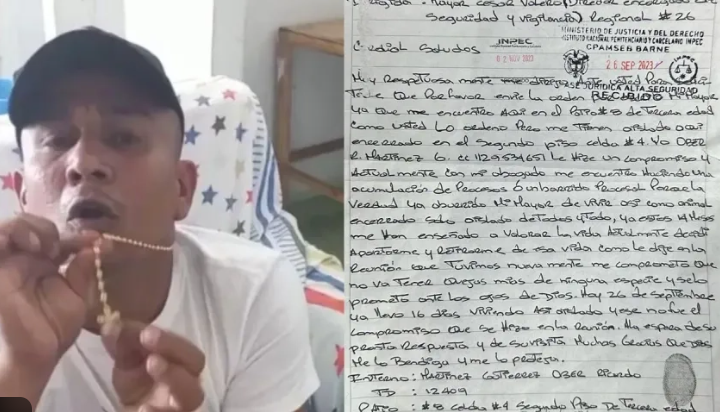 Mayor Cesar Valero (Director encargado
Seguridad y vigilancia) Regional #26
MINISTERIO DE JUSTICIA Y DEL DERECHO
INSTITUTO NACIONAL PENITENCIARIO Y CARCELARIO INPEC
CPAMSEB BARNE
INPEC
02 NOV 2023
Cordial Saludos
26 SEP 2023
JURIDICA ALTA SEGURIDAD
RECIBIDO
Muy Respetuosa mente me dirijo Ante usted Para
Que Porfavor envie la orden mi Mayor
ya que me encuentro Aqui en el Patio #8 de Tercera edad
como usted Lo ordeno Pero me Tienen aislado aqui
encerrado en el Segundo piso celda #4. Yo OBER
R. Martinez G. cc 1129534651 Le Hize un compromiso y
Actualmente con mi abogado me encuentro Haciendo una
acumulación de Procesos o un barrido Procesal Porque la
Verdad ya aburrido Mi Mayor de Vivir asi como animal
encerrado solo aislado de Todos y Todo, ya estos 14 Meses
me Han enseñado a Valorar la Vida Actualmente decidi
Apartarme y Retirarme de esa vida como le dije en la
Reunión que Tuvimos nueva mente me comprometo Que
no va Tener Quejas mias de Ninguna especie y selo
prometo ante los ojos de Dios. Hoy 26 de septiembre
ya llevo 16 dias viviendo Asi aislado y ese no fue el
compromiso que se Hizo en la Reunión. Ala espera de su
pronta Respuesta y de su visita Muchas Gracias Que Dios
Me lo Bendiga y me lo proteja.
INTERNO: MARTINEZ GUTIERREZ OBER Ricardo
TD : 12409
PATIO : #8 celda #4 Segundo Piso De Tercera edad